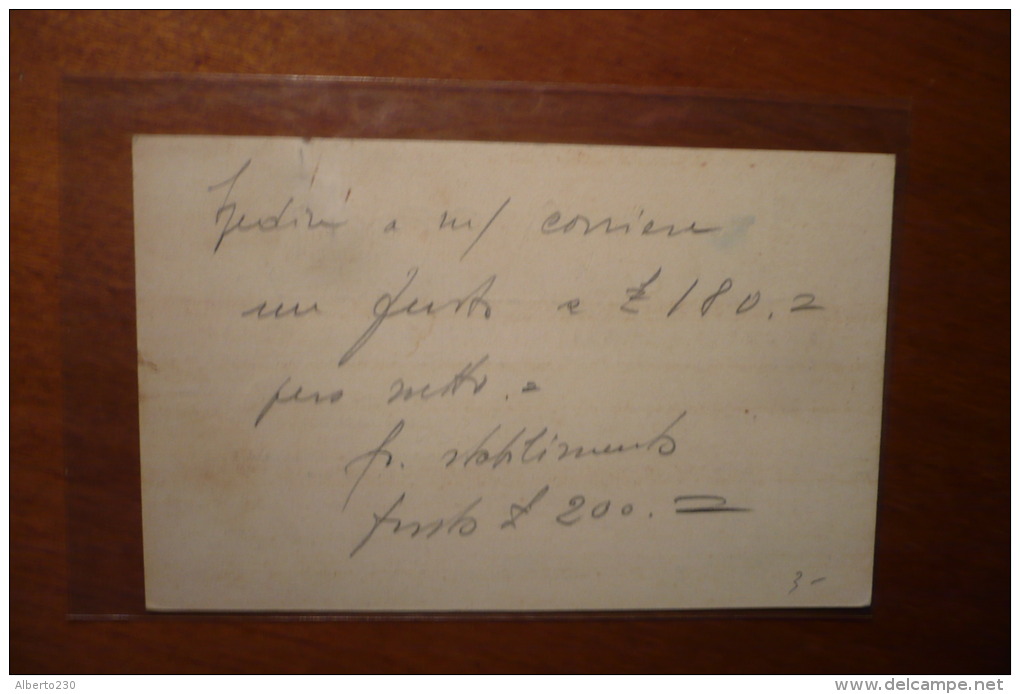 Spedire a m/ corriere
un fusto a £ 180.=
peso netto.=
fr. stabilimento
fusto £ 200.=
3-
Alberto230
www.delcampe.net